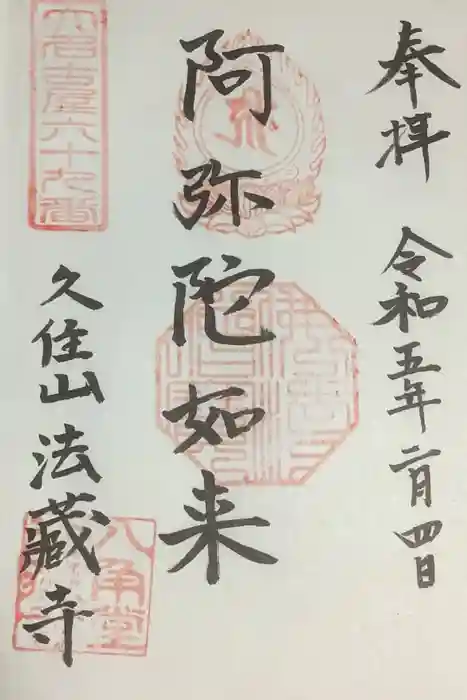 奉拝
令和五年二月四日
阿弥陀如来
大名古屋六十九番
久住山法蔵寺
八角堂